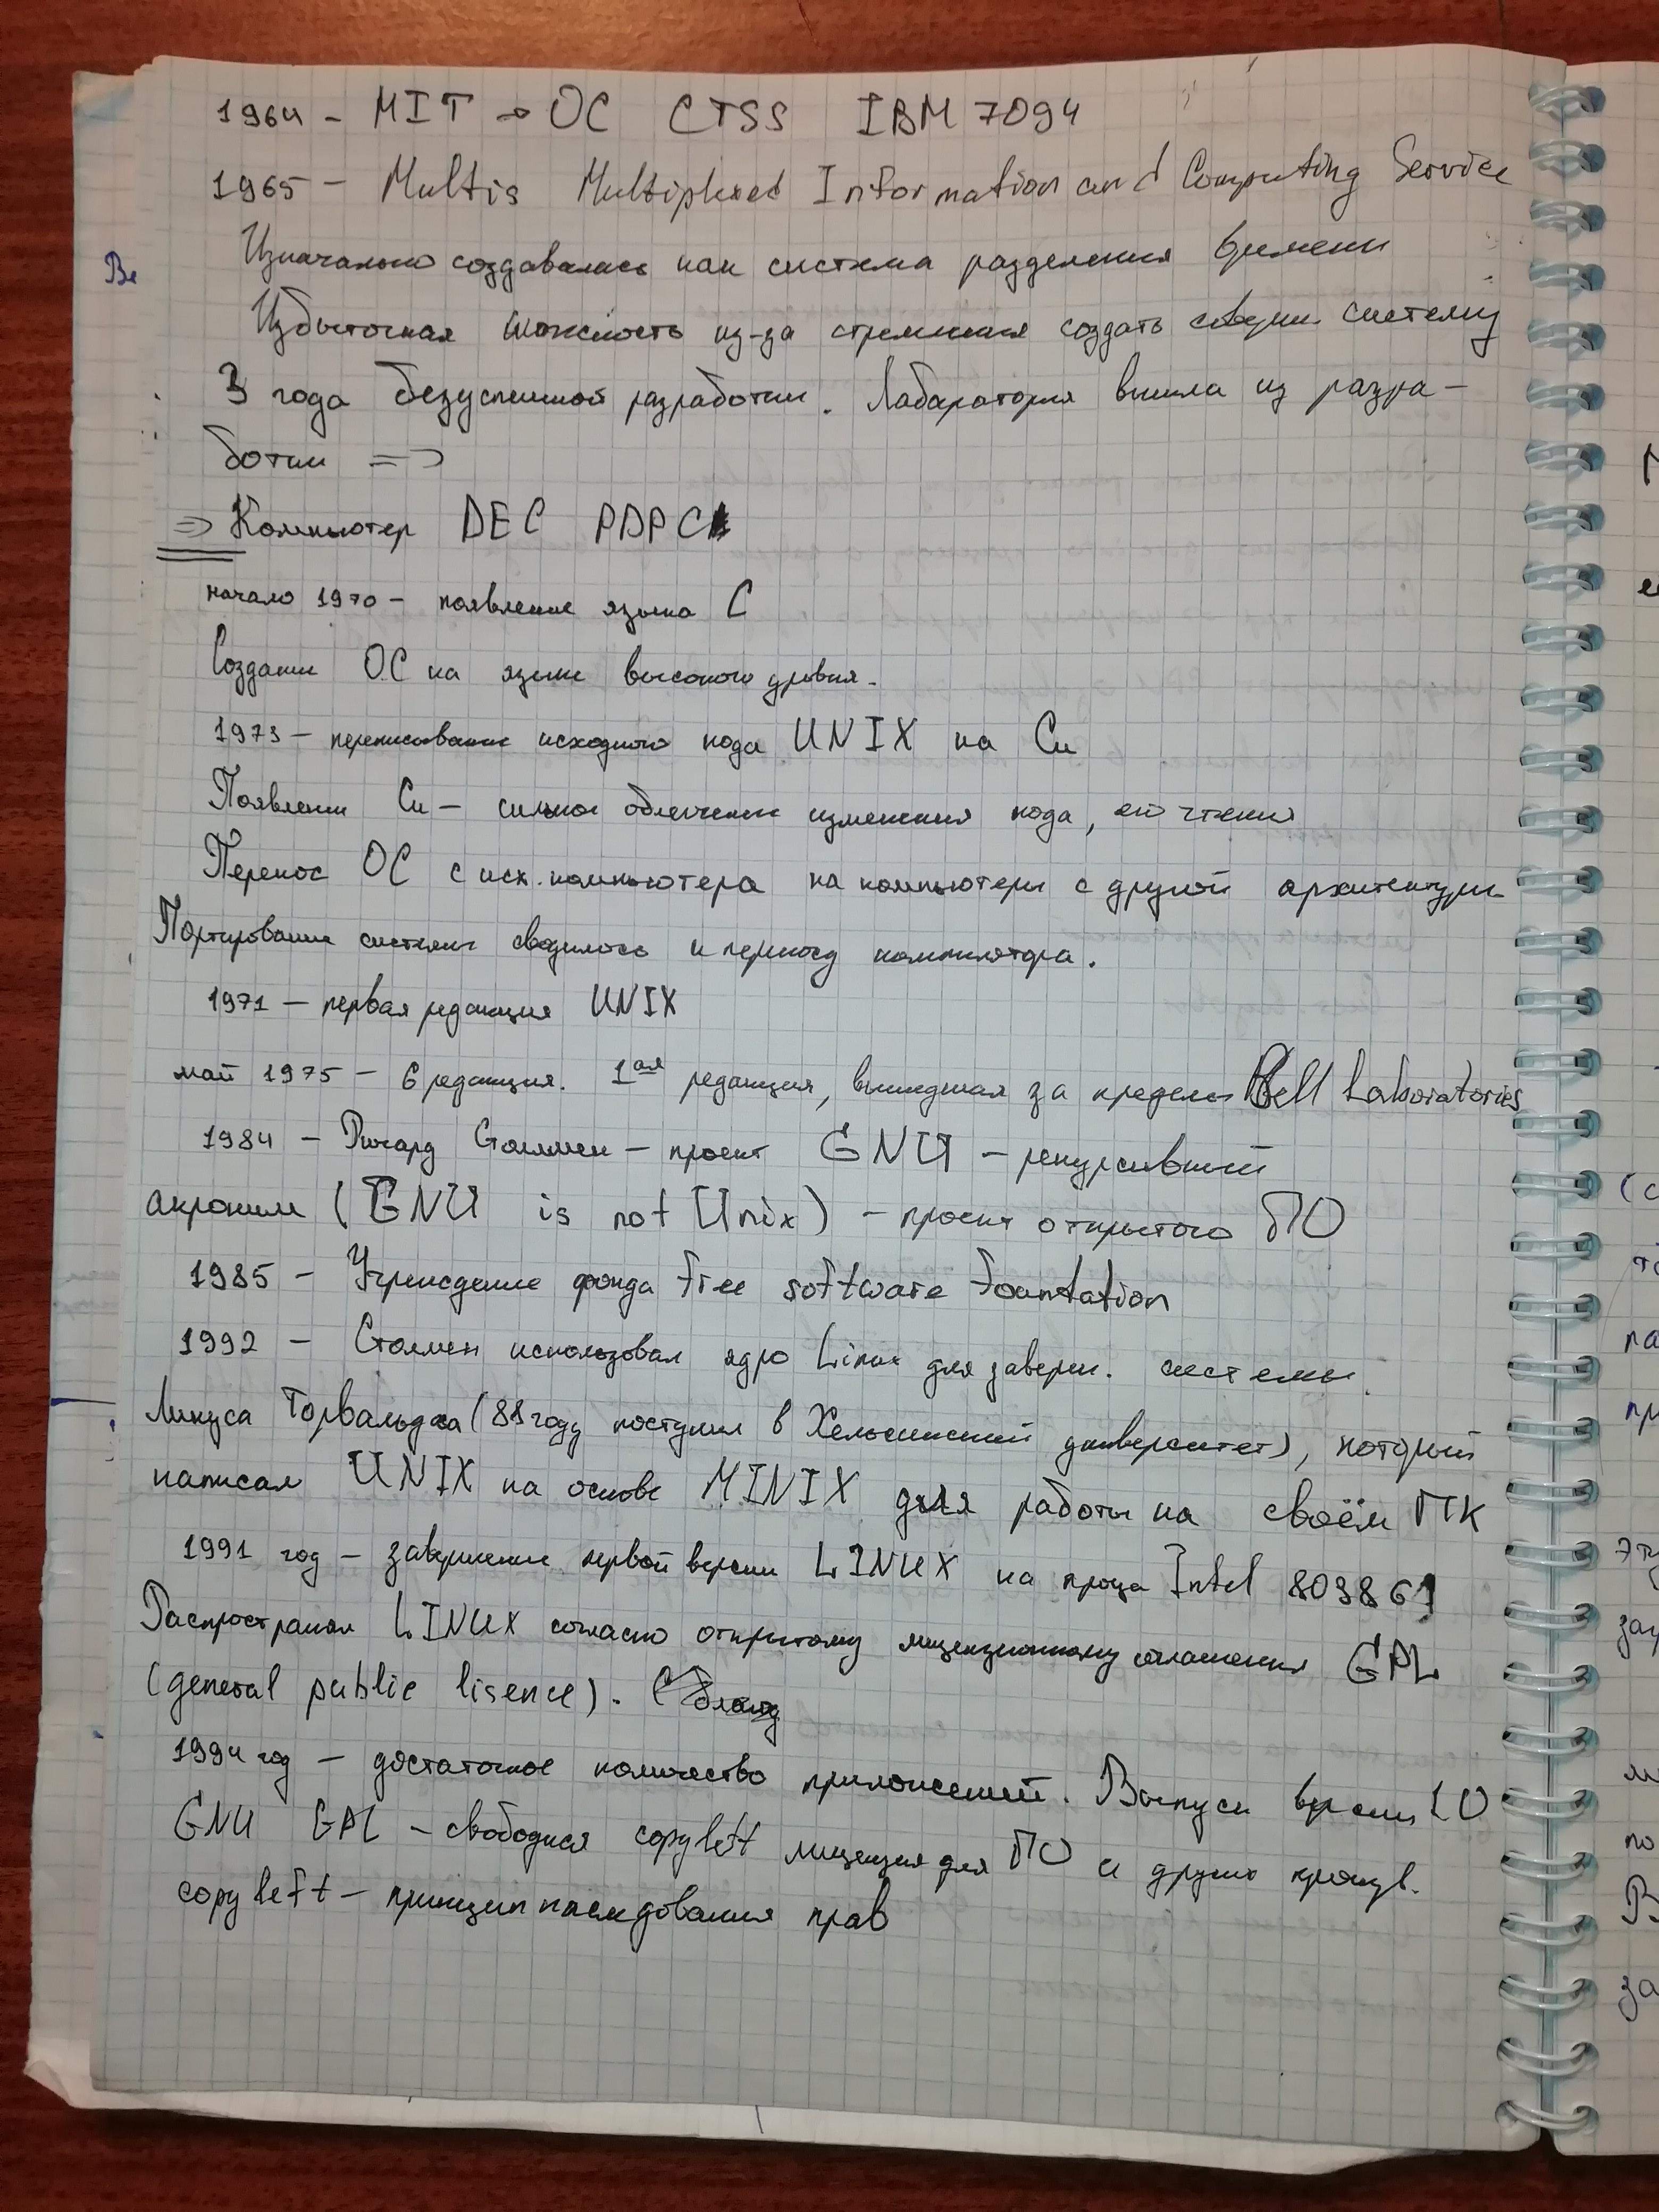 1964 - MIT → ОС CTSS IBM 7094
1965 - Multis Multiplexed Information and Computing Service
Изначально создавалась как система разделения времени
Ве
Избыточная сложность из-за стремления создать соверш. систему
3 года безуспешной разработки. Лабаратория вышла из разра-
ботки =>
=> Компьютер DEC PDP
начало 1970 - появление языка C
Создание ОС на языке высокого уровня.
1973 - переписывание исходного кода UNIX на Си
Появление Си - сильное облегчение изменения кода, его чтения
Перенос ОС с исх. компьютера на компьютеры с другой архитектуры
Портирование системы сводилось к переносу компилятора.
1971 - первая редакция UNIX
май 1975 - 6 редакция. 1ая редакция, вышедшая за пределы Bell Laboratories
1984 - Ричард Столлмен - проект GNU - рекурсивный
акроним (GNU is not Unix) - проект открытого ПО
1985 - Учреждение фонда Free software Fountation
1992 - Столмен использовал ядро Linux для заверш. системы.
Линуса Торвальдса (88 году поступил в Хельсинский университет), который
написал UNIX на основе MINIX для работы на своём ПК
1991 год - завершение первой версии LINUX на проца Intel 80386
Распространял LINUX согласно открытому лицензионному соглашения GPL
(general public lisence).
1994 год - достаточное количество приложений. Выпуск версии 1.0
GNU GPL - свободная copyleft лицензия для ПО и других произв.
copyleft - принцип наследования прав